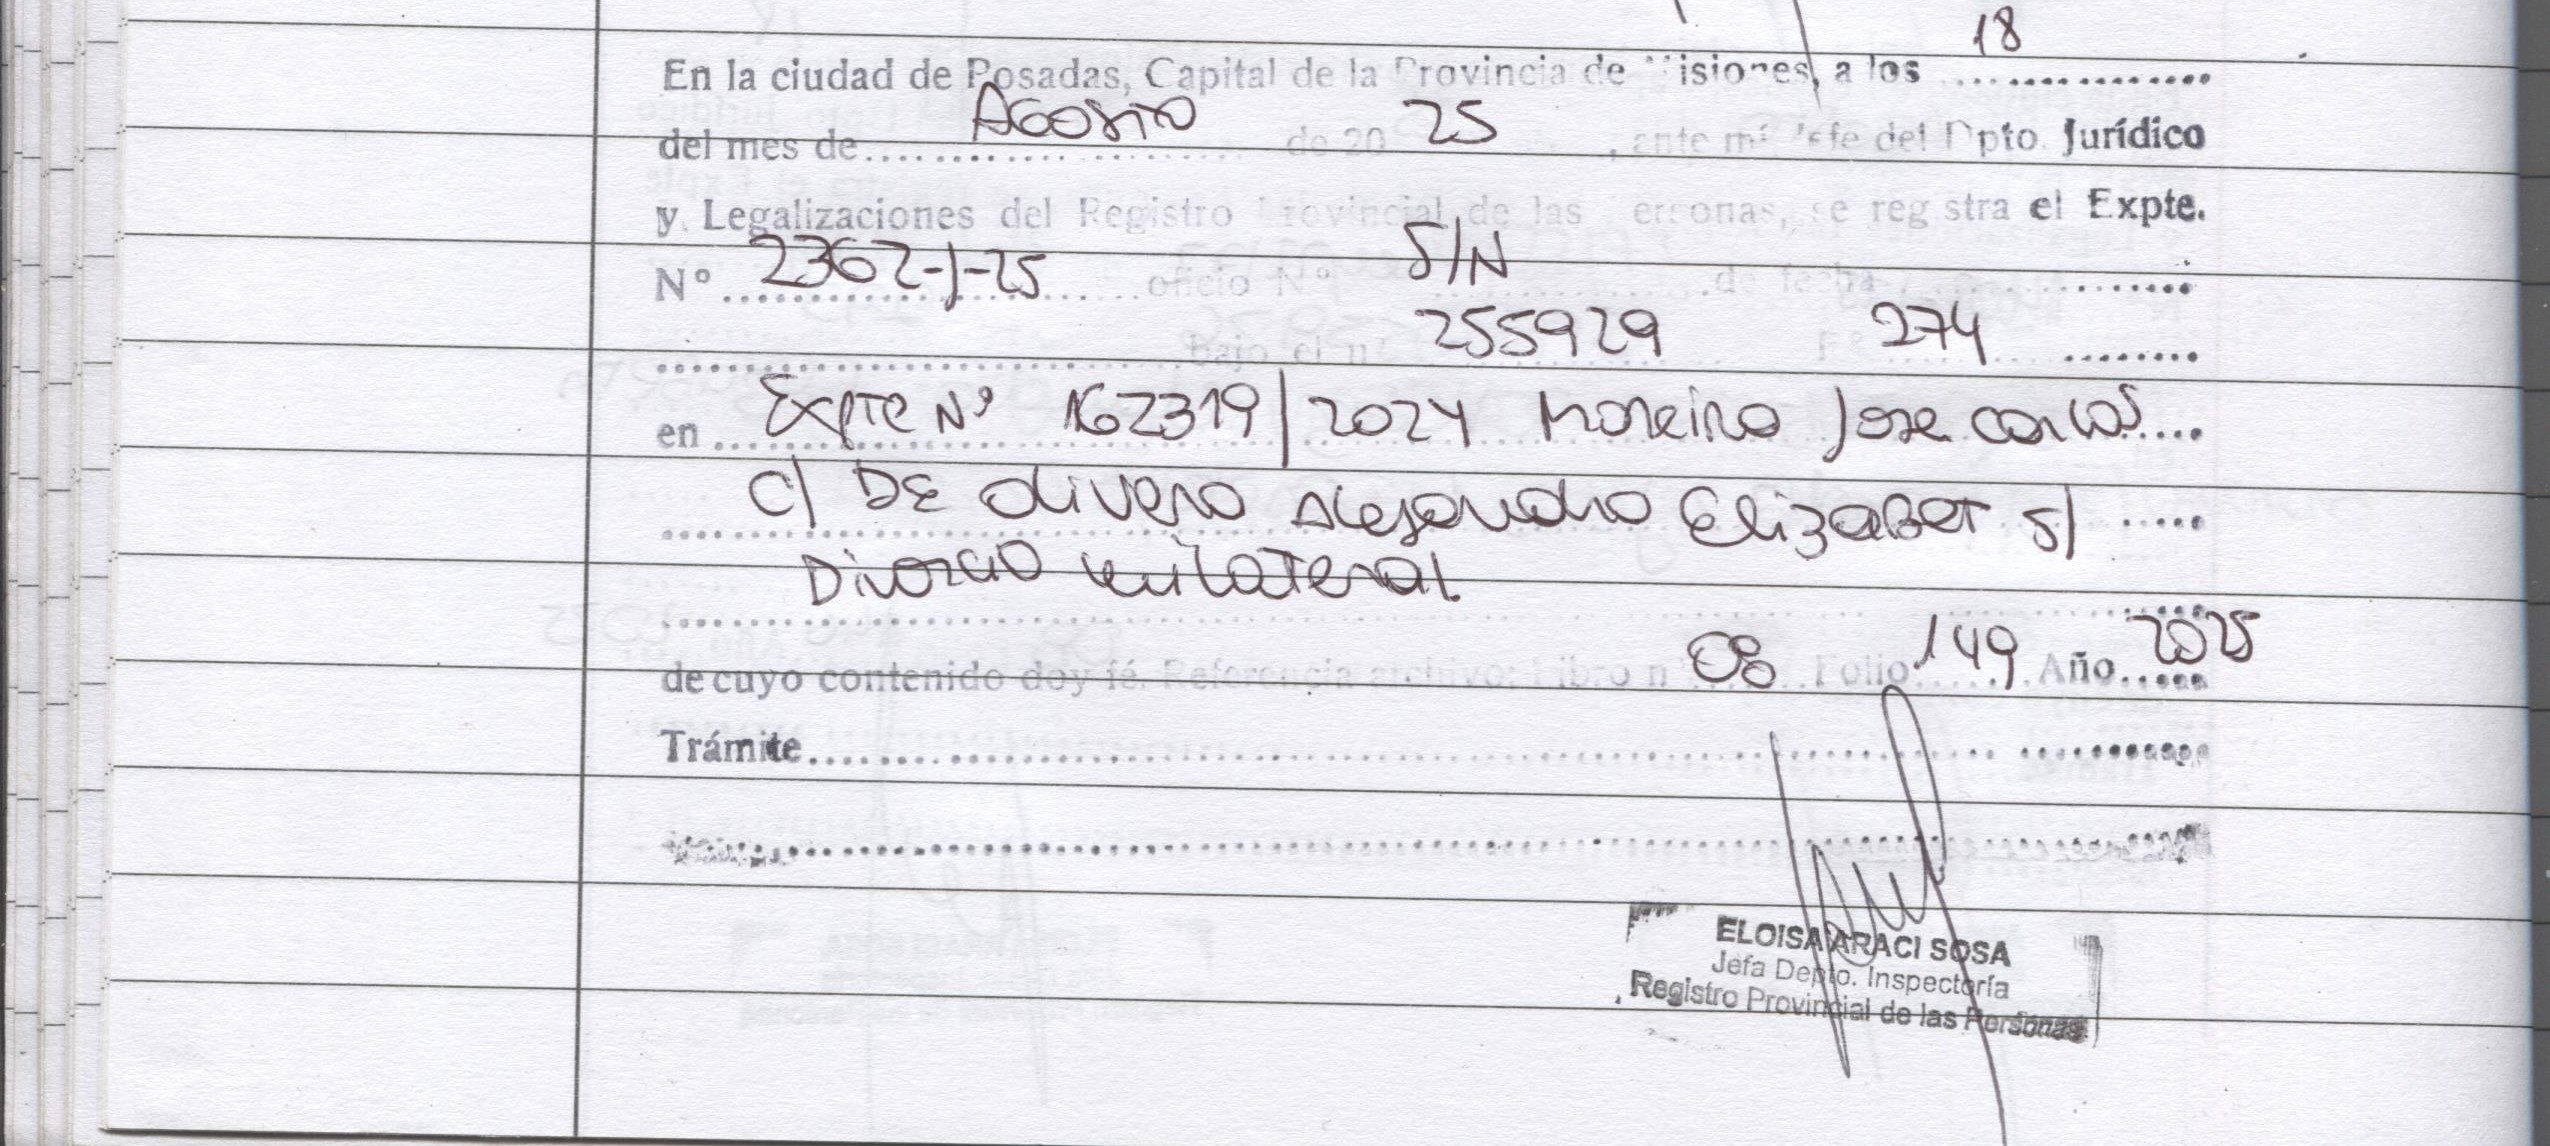 18
En la ciudad de Posadas, Capital de la Provincia de Misiones, a los ............
del mes de Agosto de 20 25, ante mí Jefe del Dpto. Jurídico
y Legalizaciones del Registro Provincial de las Personas, se registra el Expte.
Nº 2362-J-25 oficio Nº S/N de fecha ............
bajo el nº 255929 Fº 274 ........
en Expte Nº 162319/2024 Moreira Jose Carlos
C/ DE Olivera Alejandra Elizabet s/
Divorcio unilateral.
de cuyo contenido doy fé. Referencia archivo: Libro nº 08 Folio 149 Año 2025
Trámite............
ELOISA ARACI SOSA
Jefa Depto. Inspectoría
Registro Provincial de las Personas